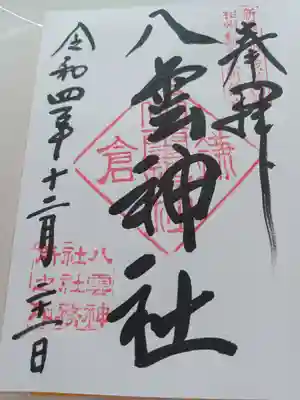 奉拝
八雲神社
鎌倉
令和四年十二月二十一日
八雲神
社社務